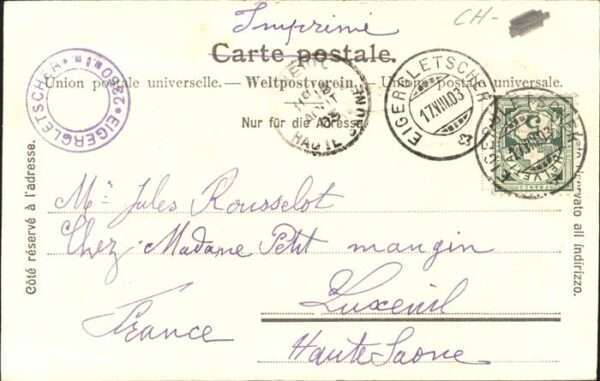 Imprimé
CH-
Carte postale.
Union postale universelle. — Weltpostverein. — Unione postale universale.
Nur für die Adresse.
EIGERGLETSCHER * 2330 m *
EIGERGLETSCHER
17.VIII.03
Côté réservé à l'adresse.
Mr Jules Rousselot
Chez Madame Petit mangin
Luxeuil
France
Haute Saone
all indirizzo.